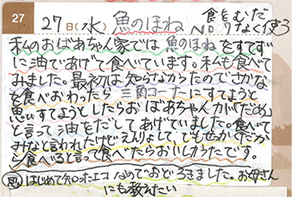 27
27日(水) 魚のほね 食をむだなく使う
No.9
私のおばあちゃん家では魚のほねをすてず
に油であげて食べています。私も食べて
みました。最初は知らなかったのでさかな
を食べおわったら三角コーナーにすてようと
思いすてようとしたらおばあちゃんが「だめ」
と言って油をだしてあげていました。食べて
みなと言われたけど
食べると言って食べたらおいしかったです。
感 はじめて知ったエコなのでおどろきました。お母さん
にも教えたい